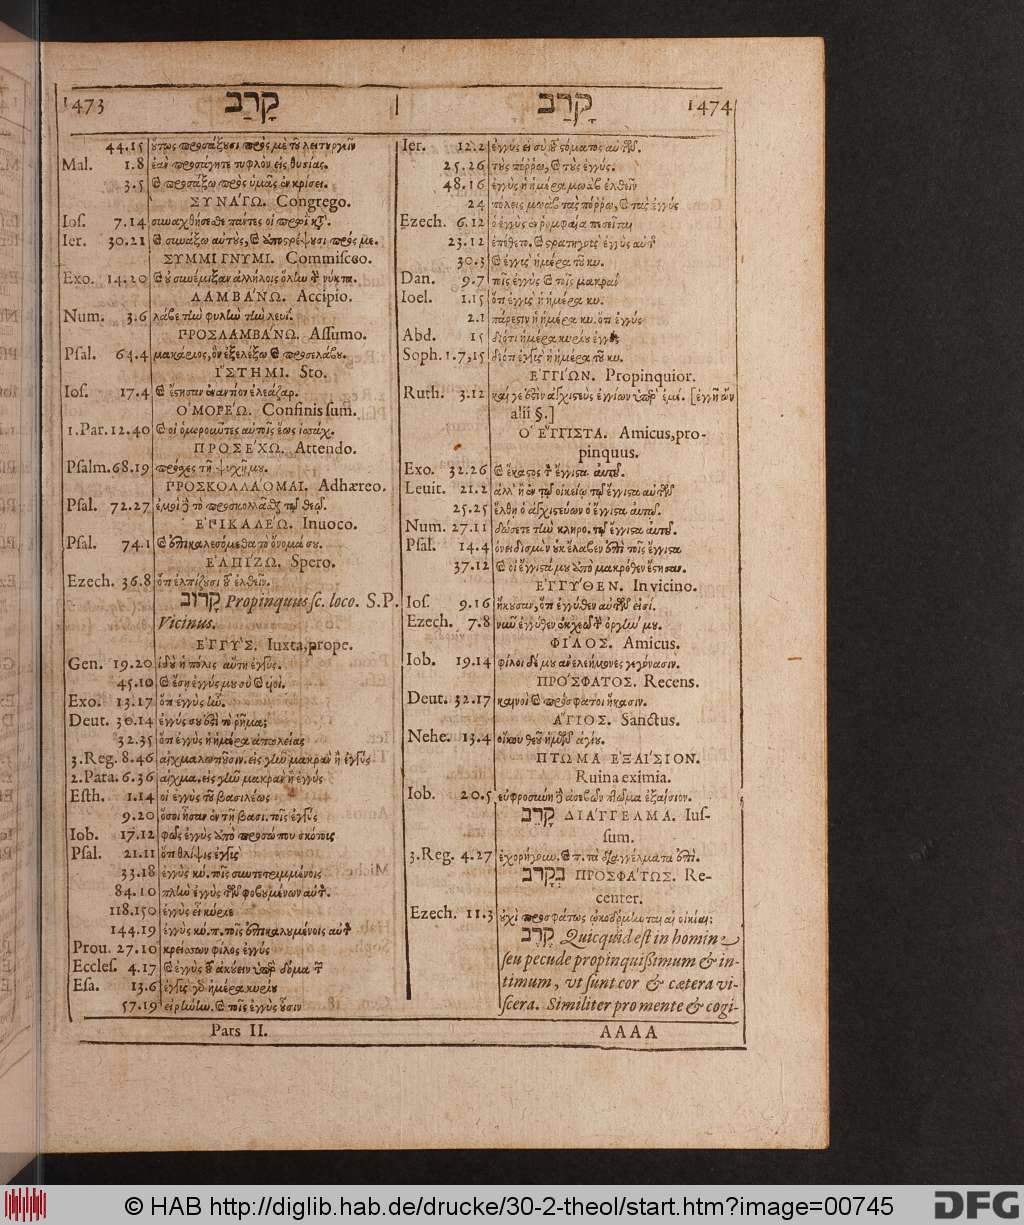 1473 קָרַב
44.15 ὅπως προσάξουσι πρὸς μὲ τοῦ λειτουργεῖν
Mal. 1.8 ἐὰν προσάγητε τυφλὸν εἰς θυσίας.
3.5 καὶ προσάξω πρὸς ὑμᾶς ἐν κρίσει.
ΣΥΝΑΓΩ. Congrego.
Ios. 7.14 συναχθήσεσθε πάντες οἱ πρωὶ κτ̃.
Ier. 30.21 καὶ συνάξω αὐτοὺς, καὶ ἀποστρέψουσι πρός με.
ΣΥΜΜΙΓΝΥΜΙ. Commisceo.
Exo. 14.20 καὶ οὐ συνέμιξαν ἀλλήλοις ὅλην τὴν νύκτα.
ΛΑΜΒΑΝΩ. Accipio.
Num. 3.6 λάβε τὴν φυλὴν τὴν λευί.
ΠΡΟΣΛΑΜΒΑΝΩ. Assumo.
Psal. 64.4 μακάριος, ὃν ἐξελέξω καὶ προσελάβου.
ΙΣΤΗΜΙ. Sto.
Ios. 17.4 καὶ ἔστησαν ἐναντίον ἐλεάζαρ.
ὉΜΟΡΕΩ. Confinis sum.
1.Par. 12.40 καὶ οἱ ὁμοροῦντες αὐτοῖς ἕως ἰσσάχ.
ΠΡΟΣΕΧΩ. Attendo.
Psalm. 68.19 πρόσχες τῇ ψυχῇ μου.
ΠΡΟΣΚΟΛΛΑΟΜΑΙ. Adhæreo.
Psal. 72.27 ἐμοὶ δὲ τὸ προσκολλᾶσθαι τῷ θεῷ.
ΕΠΙΚΑΛΕΩ. Inuoco.
Psal. 74.1 καὶ ἐπικαλεσόμεθα τὸ ὄνομά σου.
ΕΛΠΙΖΩ. Spero.
Ezech. 36.8 ὅτι ἐλπίζουσι τοῦ ἐλθεῖν.
קָרוֹב Propinquus sc. loco. S.P.
Vicinus.
ΕΓΓΥΣ. Iuxta, prope.
Gen. 19.20 ἰδοὺ ἡ πόλις αὕτη ἐγγύς.
45.10 καὶ ἔσῃ ἐγγύς μου σὺ καὶ υἱοί.
Exo. 13.17 ὅτι ἐγγὺς ἦν.
Deut. 30.14 ἐγγύς σου ἐστὶ τὸ ῥῆμα;
32.35 ὅτι ἐγγὺς ἡ ἡμέρα ἀπωλείας
3.Reg. 8.46 αἰχμαλωτιοῦσιν. εἰς γῆν μακρὰν ἢ ἐγγύς
2.Para. 6.36 αἰχμα. εἰς γῆν μακρὰν ἢ ἐγγύς
Esth. 1.14 οἱ ἐγγὺς τοῦ βασιλέως
9.20 ὅσοι ἦσαν ἐν τῇ βασι. τοῖς ἐγγύς
Iob. 17.12 φῶς ἐγγὺς ἀπὸ προσώπου σκότους
Psal. 21.11 ὅτι θλίψις ἐγγύς
33.18 ἐγγὺς κύ. τοῖς συντετριμμένοις
84.10 πλὴν ἐγγὺς τῶν φοβουμένων αὐτόν.
118.150 ἐγγὺς εἶ κύριε
144.19 ἐγγὺς κύ. π. τοῖς ἐπικαλουμένοις αὐτόν
Prou. 27.10 κρείσσων φίλος ἐγγύς
Eccles. 4.17 καὶ ἐγγὺς τοῦ ἀκούειν ὑπὲρ δόμα τ
Esa. 13.6 ἐγγὺς γὰρ ἡμέρα κυρίου
57.19 εἰρήνην. καὶ τοῖς ἐγγὺς οὖσιν
Pars II.
קָרַב 1474
Ier. 12.2 ἐγγὺς εἶ σὺ τοῦ στόματος αὐτῶν.
25.26 τοὺς πόῤῥω, καὶ τοὺς ἐγγύς.
48.16 ἐγγὺς ἡ ἡμέρα μωὰβ ἐλθεῖν
24 πόλεις μωὰβ τὰς πόῤῥω, καὶ τὰς ἐγγύς
Ezech. 6.12 ὁ ἐγγὺς ἐν ῥομφαίᾳ πεσεῖται
23.12 ἐπέθετο. καὶ στρατηγοὺς ἐγγὺς αὐτ
30.3 καὶ ἐγγὺς ἡμέρα τοῦ κυ.
Dan. 9.7 τοῖς ἐγγὺς καὶ τοῖς μακράν
Ioel. 1.15 ὅτι ἐγγὺς ἡ ἡμέρα κυ.
2.1 πάρεστιν ἡ ἡμέρα κυ. ὅτι ἐγγύς
Abd. 15 διότι ἡμέρα κυρίου ἐγγύς
Soph. 1.7,15 διότι ἐγγὺς ἡ ἡμέρα τοῦ κυ.
ΕΓΓΙΩΝ. Propinquior.
Ruth. 3.12 καί γε ἐστὶν ἀγχιστεὺς ἐγγίων ὑπὲρ ἐμέ. [ἐγγὺ ὢν
alii §.]
Ὁ ἜΓΓΙΣΤΑ. Amicus, pro-
pinquus.
Exo. 32.26 καὶ ἕκαστος τὸν ἔγγιστα αὐτοῦ.
Leuit. 21.2 ἀλλ' ἢ ἐν τῷ οἰκείῳ τῷ ἔγγιστα αὐτῶν
25.25 ἔλθῃ ὁ ἀγχιστεύων ὁ ἔγγιστα αὐτοῦ.
Num. 27.11 δώσετε τὴν κληρο. τῷ ἔγγιστα αὐτοῦ.
Psal. 14.4 ὀνειδισμὸν οὐκ ἔλαβεν ἐπὶ τοῖς ἔγγιστα
37.12 καὶ οἱ ἔγγιστά μου ἀπὸ μακρόθεν ἔστησαν.
ΕΓΓΥΘΕΝ. In vicino.
Ios. 9.16 ἤκουσαν, ὅτι ἐγγύθεν αὐτῶν εἰσί.
Ezech. 7.8 νῦν ἐγγύθεν ἐκχεῶ τὴν ὀργήν μου.
ΦΙΛΟΣ. Amicus.
Iob. 19.14 φίλοι δέ μου ἀνελεήμονες γεγόνασιν.
ΠΡΟΣΦΑΤΟΣ. Recens.
Deut. 32.17 καινοὶ καὶ πρόσφατοι ἥκασιν.
ἍΓΙΟΣ. Sanctus.
Nehe. 13.4 οἴκου θεοῦ ἡμῶν ἁγίου.
ΠΤΩΜΑ ΕΞΑΙΣΙΟΝ.
Ruina eximia.
Iob. 20.5 εὐφροσύνη δὲ ἀσεβῶν πτῶμα ἐξαίσιον.
קָרֵב ΔΙΑΓΓΕΛΜΑ. Ius-
sum.
3.Reg. 4.27 ἐχορήγουν. καὶ π. τὰ διαγγέλματα ἐπὶ.
בְּקָרֹב ΠΡΟΣΦΑΤΩΣ. Re-
center.
Ezech. 11.3 οὐχὶ προσφάτως ᾠκοδόμηνται αἱ οἰκίαι;
קֶרֶב Quicquid est in homine
seu pecude propinquißimum & in-
timum, vt sunt cor & cætera vi-
scera. Similiter pro mente & cogi-
AAAA
© HAB http://diglib.hab.de/drucke/30-2-theol/start.htm?image=00745
DFG